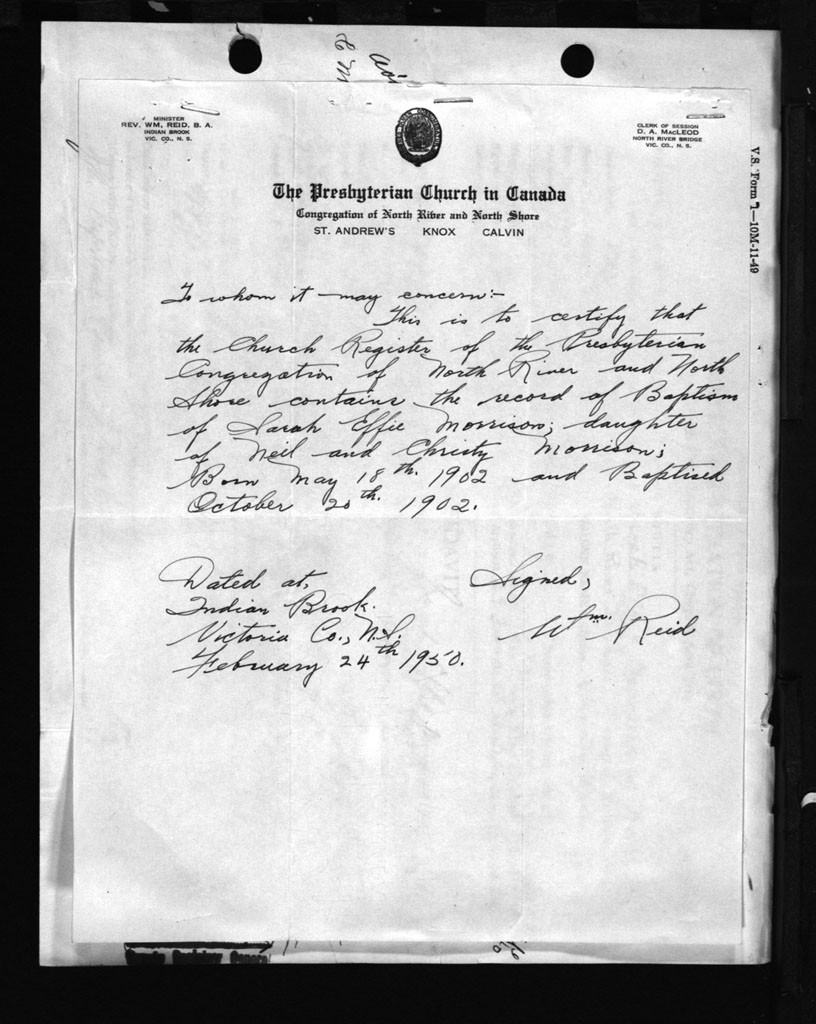 MINISTER
REV. WM, REID, B. A.
INDIAN BROOK
VIC. CO., N. S.
CLERK OF SESSION
D. A. MACLEOD
NORTH RIVER BRIDGE
VIC. CO., N. S.
V.S. Form 7—10M-11-49
The Presbyterian Church in Canada
Congregation of North River and North Shore
ST. ANDREW'S KNOX CALVIN
To whom it may concern:-
This is to certify that
the Church Register of the Presbyterian
Congregation of North River and North
Shore contains the record of Baptism
of Sarah Effie Morrison; daughter
of Neil and Christy Morrison;
Born May 18th. 1902 and Baptised
October 20th. 1902.
Dated at,
Indian Brook.
Victoria Co., N.S.
February 24th 1950.
Signed,
Wm. Reid